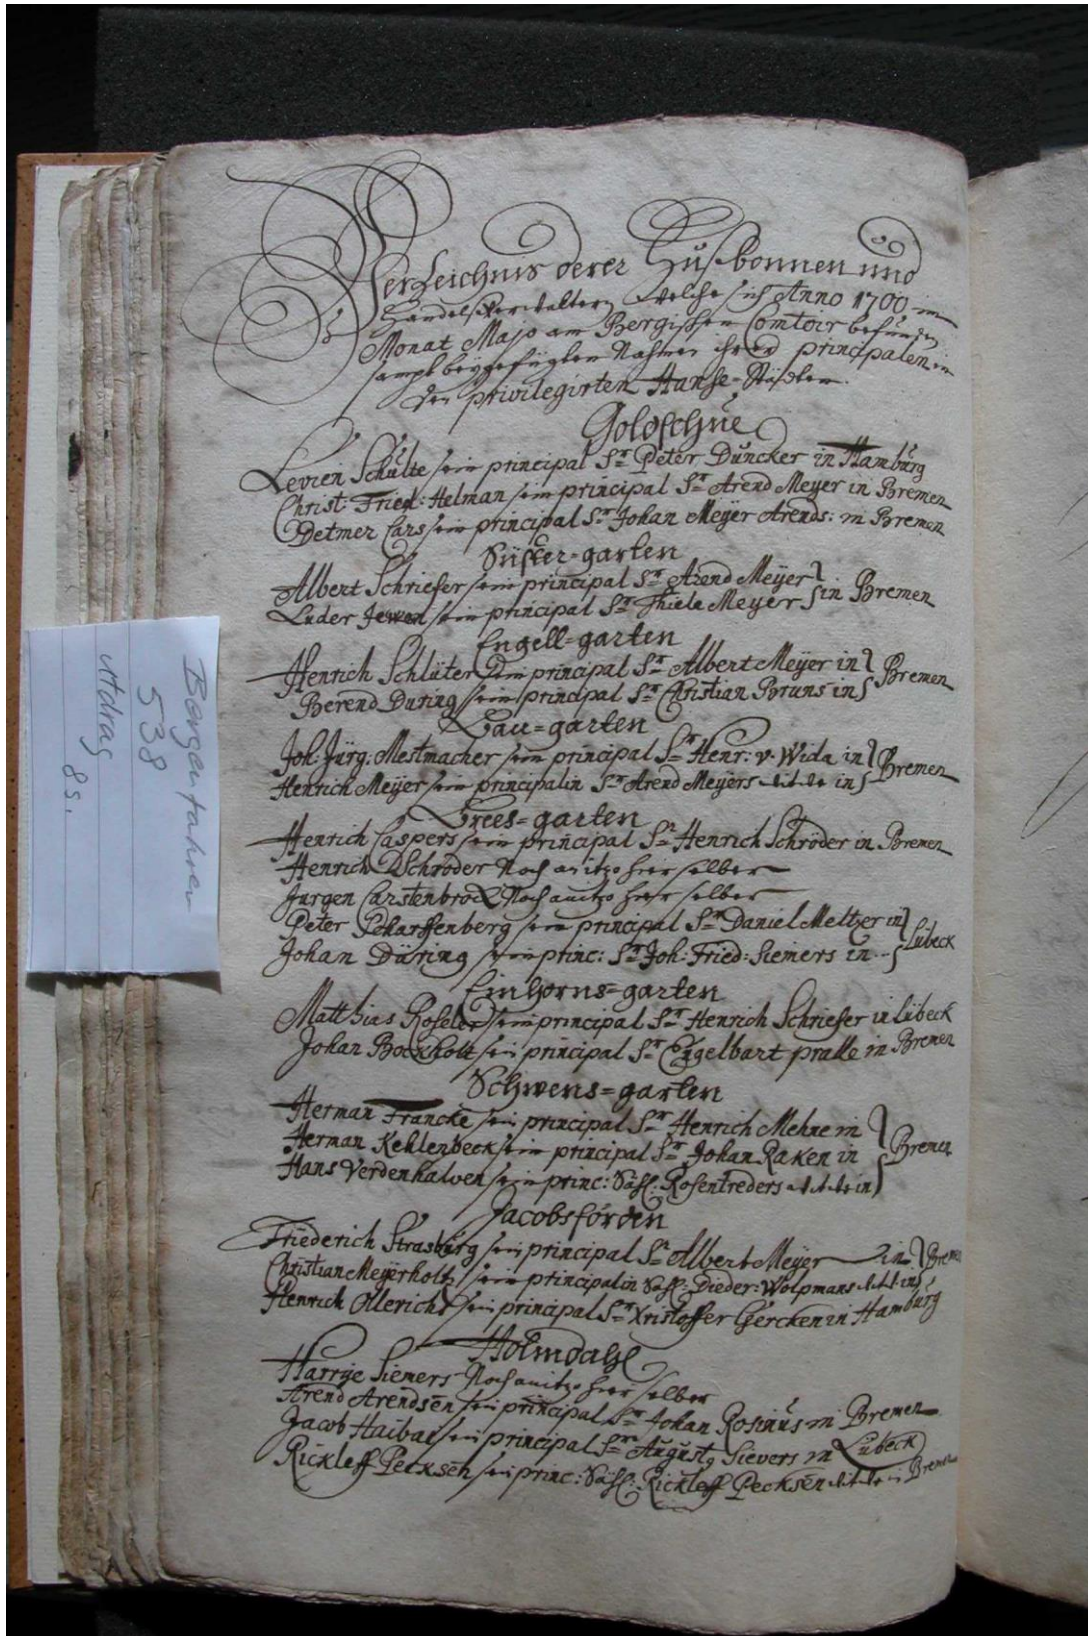 Verzeichnis derer Husbonnen und
Handelsverwaltern welche sich Anno 1700 im
Monat Majo am Bergischen Comtoir befunden
sampt beygefügten Nahmen ihrer principalen in
den privilegirten Hanse-Städten.
Goldschue
Levien Schulte sein principal Sr Peter Duncker in Hamburg
Christ: Fried: Helman sein principal Sr Arend Meyer in Bremen
Detmer Cars sein principal Sr Johan Meyer Arends: in Bremen
Süster-garten
Albert Schriefer sein principal Sr Arend Meyer
Luder Jewen sein principal Sr Thiele Meyer } in Bremen
Engell=garten
Henrich Schlüter sein principal Sr Albert Meyer in
Berend During sein principal Sr Christian Bruns in } Bremen
Lau=garten
Joh: Jürg: Mestmacher sein principal Sr Henr: v. Wida in
Henrich Meyer sein principalin Sr Arend Meyers in } Bremen
Brees=garten
Henrich Caspers sein principal Sr Henrich Schröder in Bremen
Henrich Schroder Noch anitzo hier selber
Jurgen Carstenbrock Noch anitzo hier selber
Peter Scharffenberg sein principal Sr Daniel Meltzer in
Johan Düring sein princ: Sr Joh: Fried: Siemers in } Lübeck
Einhorns=garten
Matthias Roseler sein principal Sr Henrich Schriefer in Lübeck
Johan Bockholt sein principal Sr Engelbart pralle in Bremen
Schwens=garten
Herman Francke sein principal Sr Henrich Mehne in
Herman Kehlenbeck sein principal Sr Johan Raken in } Bremen
Hans Verdenhalven sein princ: Sähl: Rosentreders in
Jacobsforden
Friederich Strasburg sein principal Sr Albert Meyer in } Bremen
Christian Meyerholtz sein principalin Sähl: Dieder: Wolpmans in
Henrich Ollerichs sein principal Sr Xristoffer Gercken in Hamburg
Holmdahl
Harrye Siemers Noch anitzo hier selber
Arend Arendsen sein principal Sr Johan Rosinus in Bremen
Jacob Haibar sein principal Sr August Sievers in Lübeck
Rickleff Pecksen sein princ: Sähl: Rickleff Pecksen in Bremen
Bergenfahrer
538
utdrag
8 s.